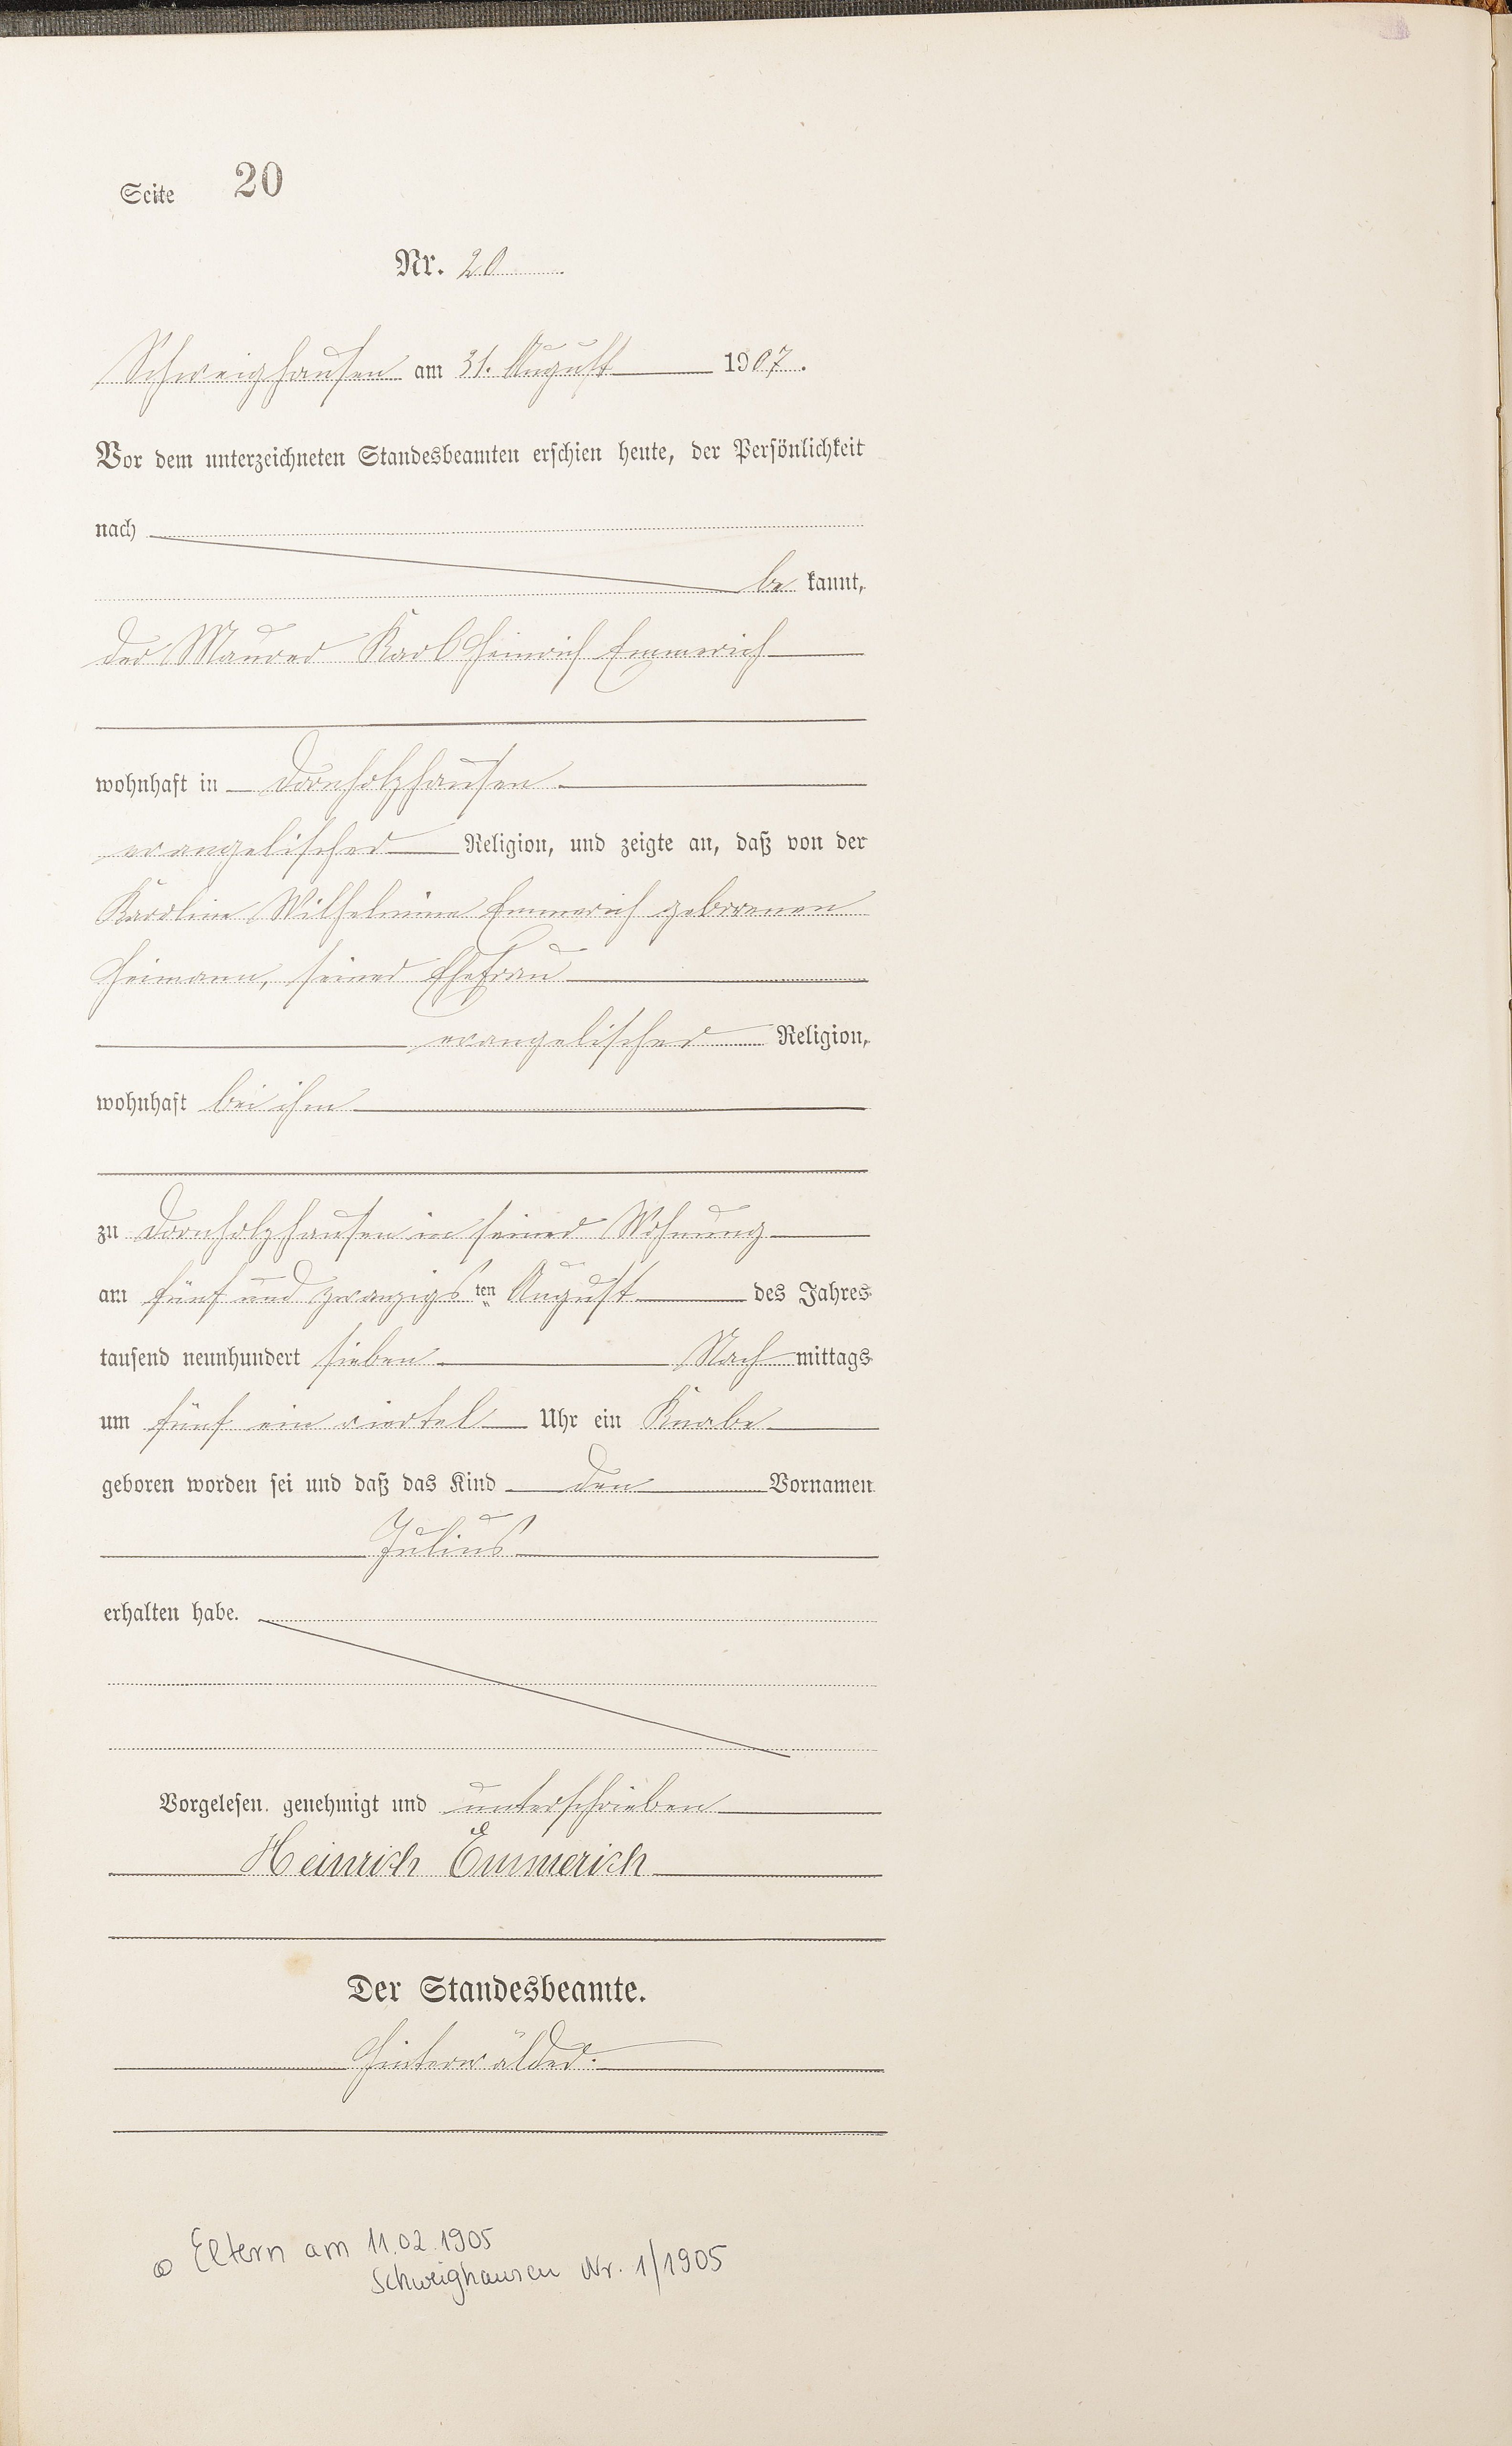 Seite 20
Nr. 20
Schweighausen am 31. August 1907.
Vor dem unterzeichneten Standesbeamten erschien heute, der Persönlichkeit
nach
be kannt,
der Maurer Karl Heinrich Emmerich
wohnhaft in Dornholzhausen
evangelischer Religion, und zeigte an, daß von der
Karoline Wilhelmine Emmerich geborenen
Heimann, seiner Ehefrau
evangelischer Religion,
wohnhaft bei ihm
zu Dornholzhausen in seiner Wohnung
am fünf und zwanzigsten August des Jahres
tausend neunhundert sieben Nachmittags
um fünf ein viertel Uhr ein Knabe
geboren worden sei und daß das Kind den Vornamen
Julius
erhalten habe.
Vorgelesen, genehmigt und unterschrieben
Heinrich Emmerich
Der Standesbeamte.
Hinterwälder.
⚭ Eltern am 11.02.1905
Schweighausen Nr. 1/1905